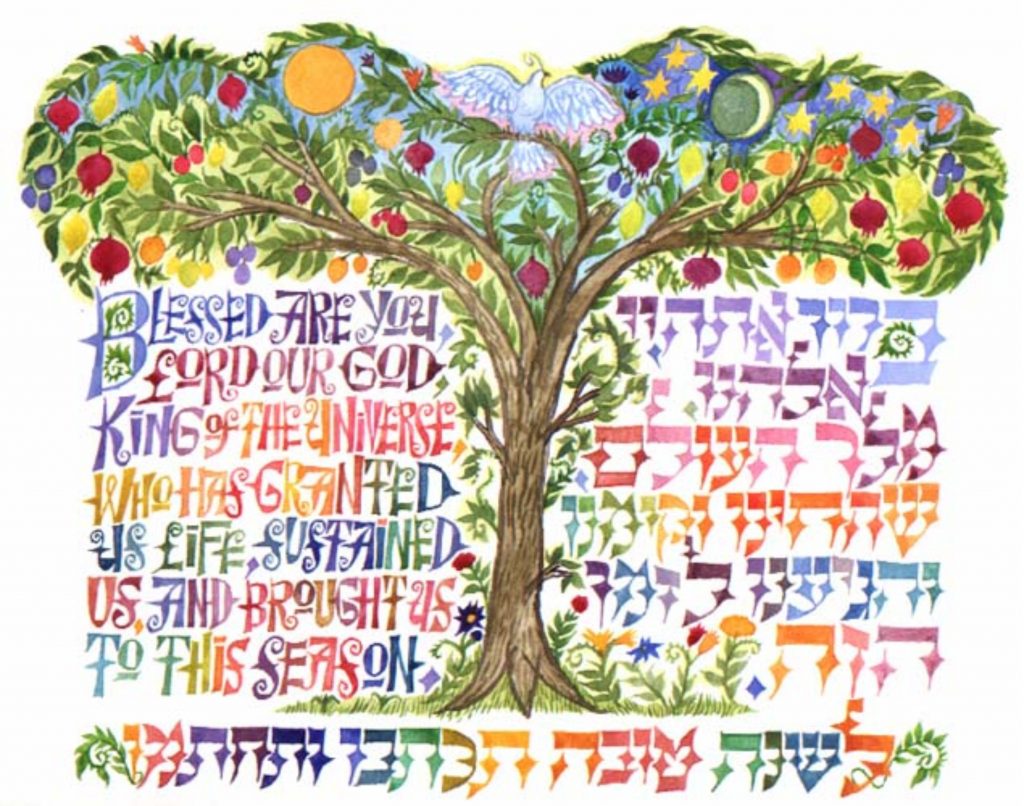 BLESSED ARE YOU,
LORD OUR GOD,
KING OF THE UNIVERSE,
WHO HAS GRANTED
US LIFE, SUSTAINED
US, AND BROUGHT US
TO THIS SEASON.
ברוך אתה יי,
אלהינו
מלך העולם
שהחינו וקימנו
והגיענו לזמן
הזה.
לשנה טובה תכתבו ותחתמו